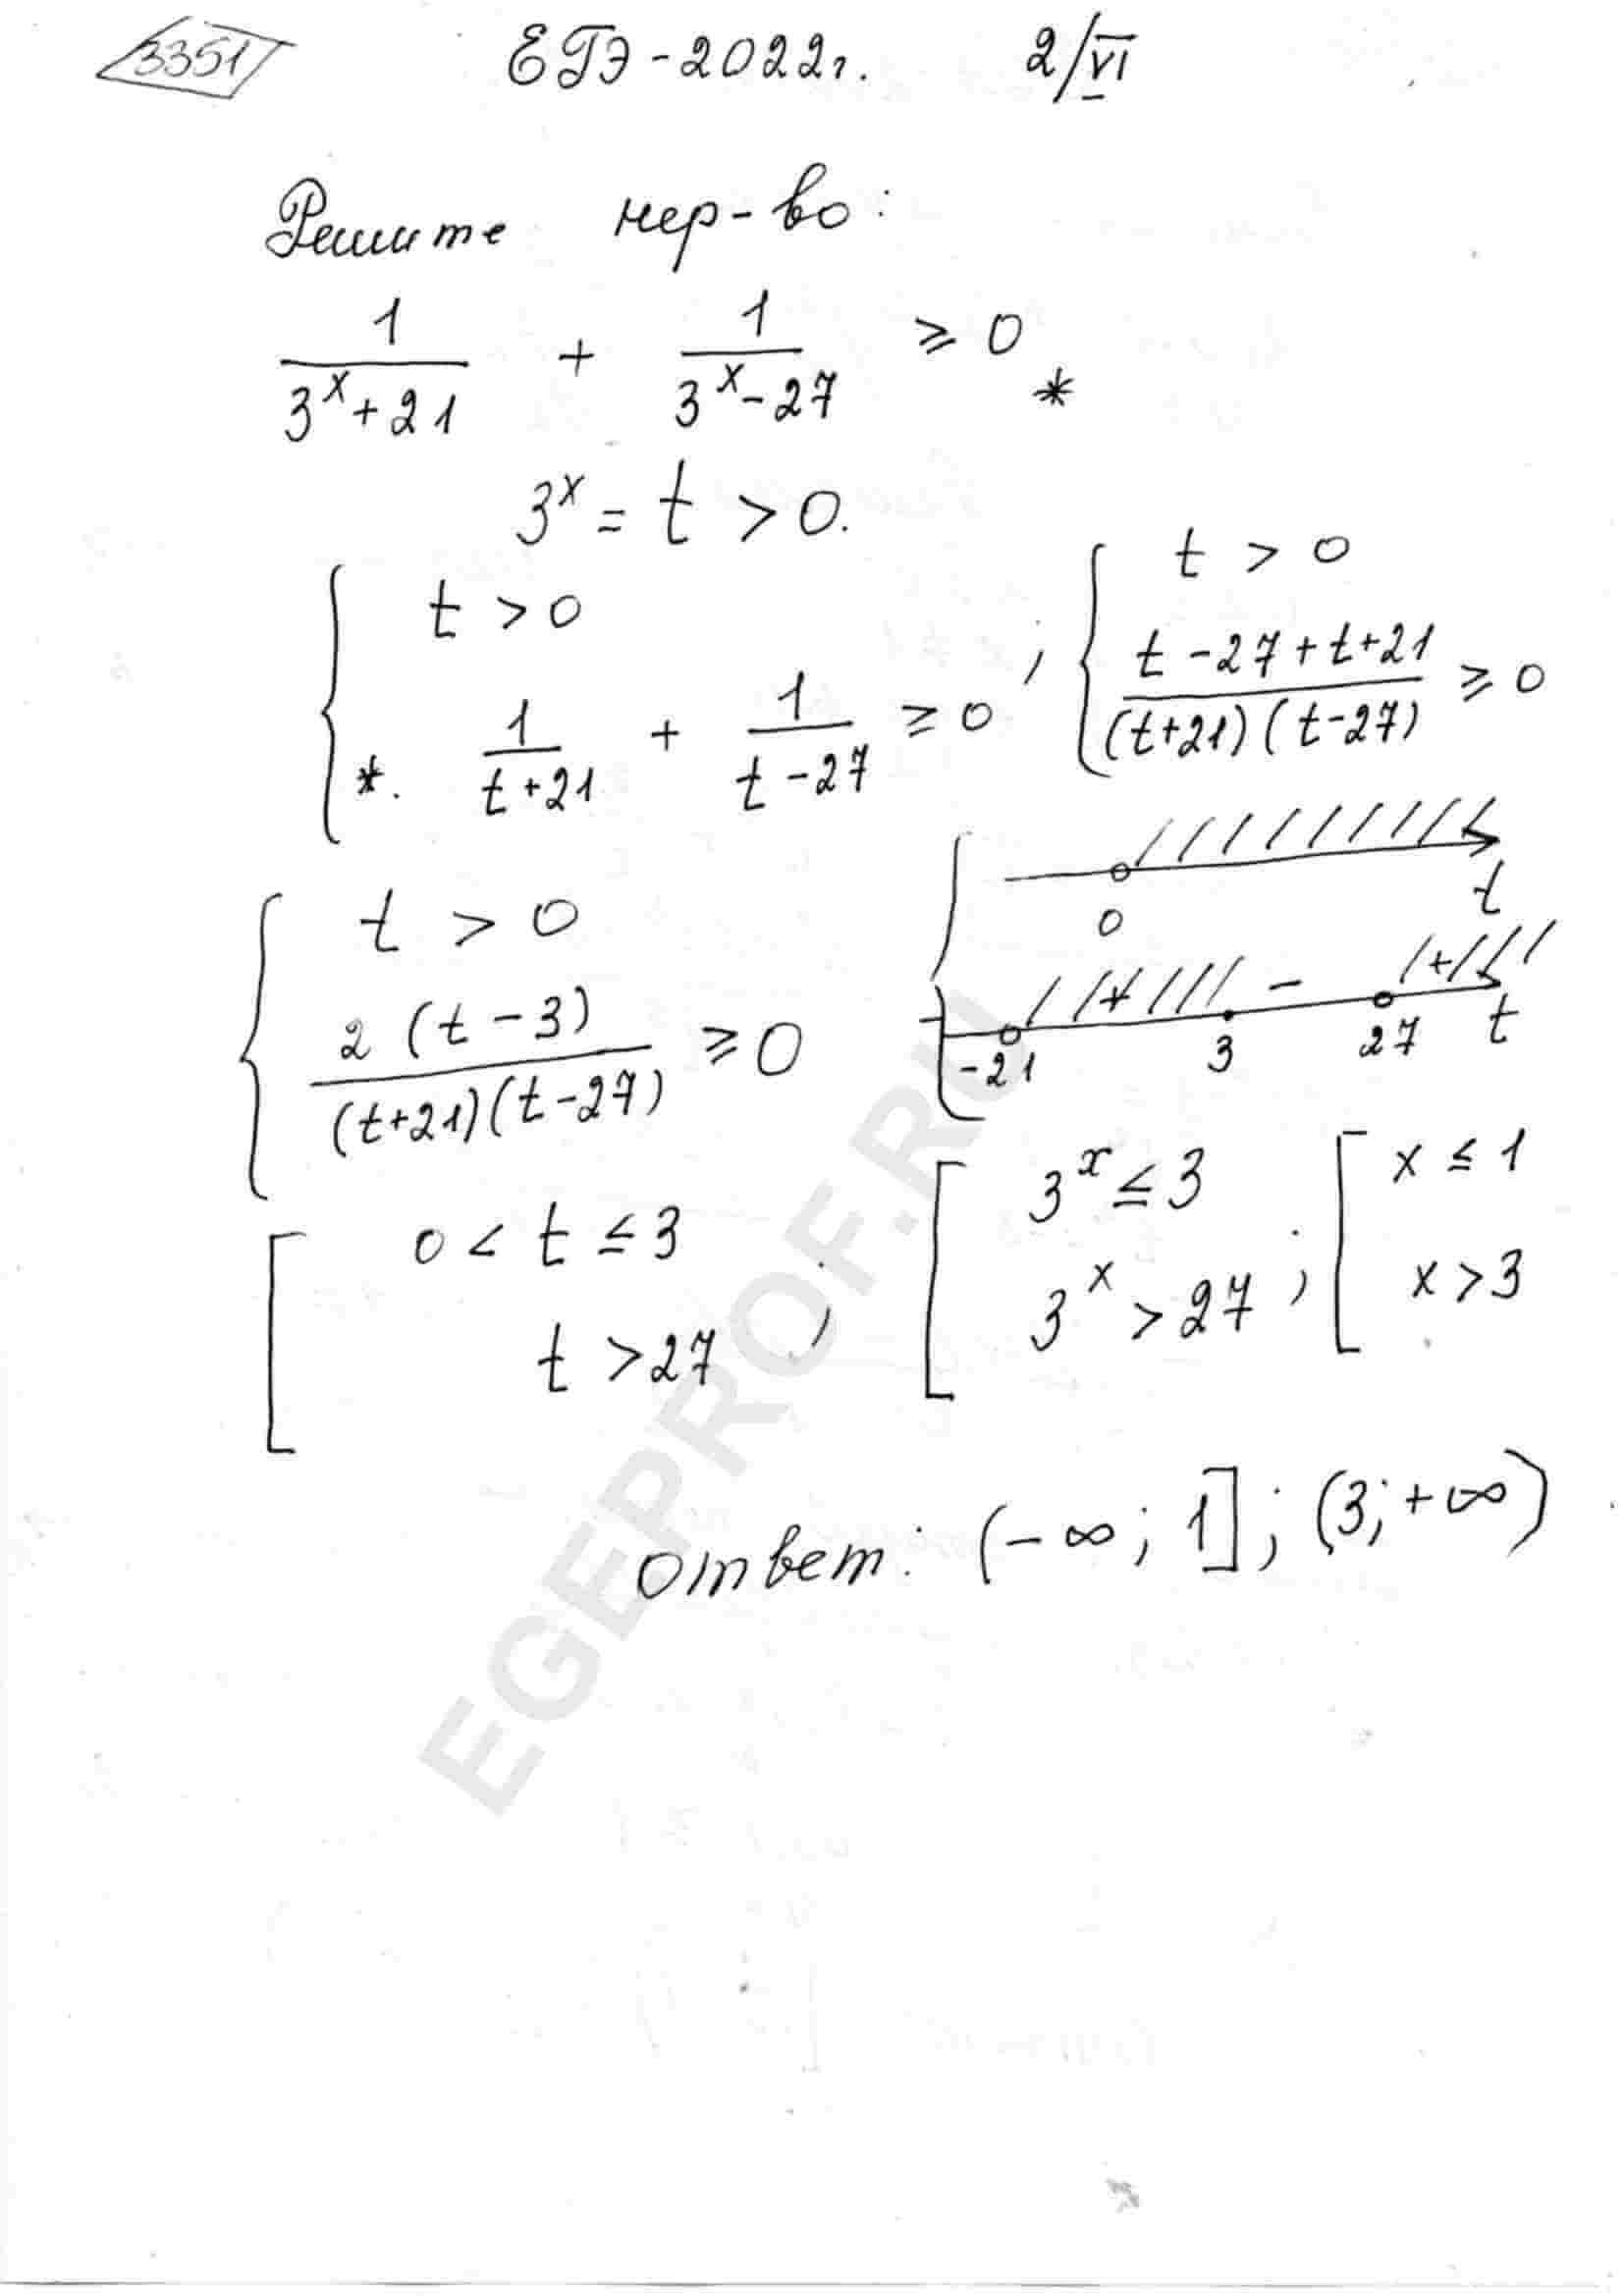 3351 ЕГЭ-2022г. 2/VI
Решите нер-во:
1/(3^x+21) + 1/(3^x-27) ≥ 0 *
3^x = t > 0.
{ t > 0 ; * . 1/(t+21) + 1/(t-27) ≥ 0 , { t > 0 ; (t-27+t+21)/((t+21)(t-27)) ≥ 0
{ t > 0 ; 2(t-3)/((t+21)(t-27)) ≥ 0
0 t
- + - +
-21 3 27 t
[ 0 < t ≤ 3 ; t > 27 ; [ 3^x ≤ 3 ; 3^x > 27 ; [ x ≤ 1 ; x > 3
Ответ: (-∞; 1]; (3; +∞)
EGEPROF.RU